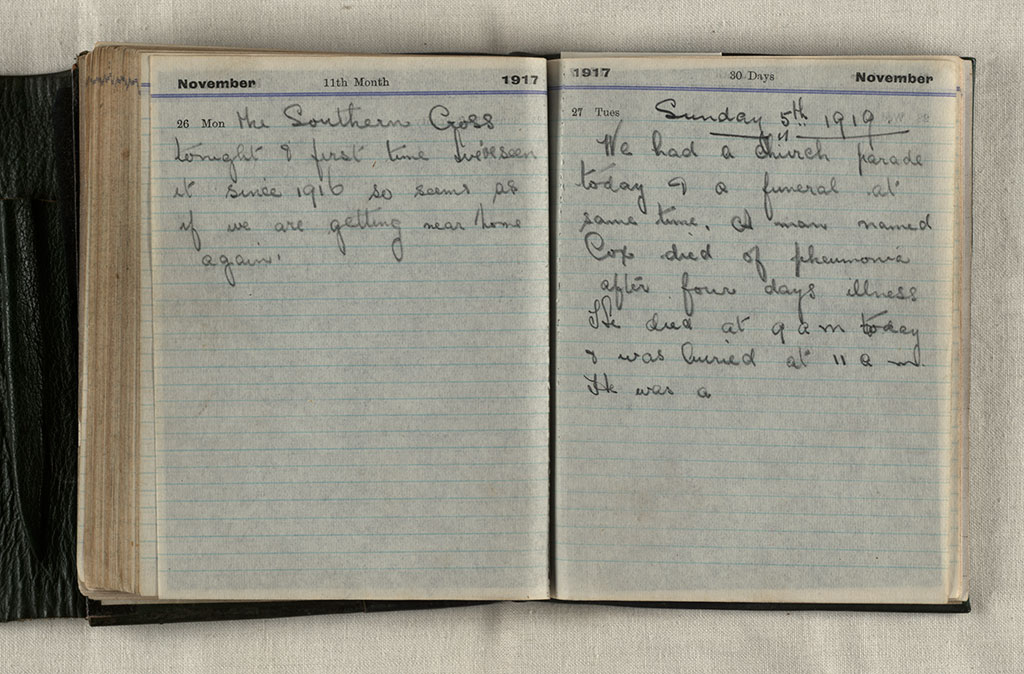 November 11th Month 1917
26 Mon the Southern Cross
tonight & first time we've seen
it since 1916 so seems as
if we are getting near home
again.
1917 30 Days November
27 Tues Sunday 5th 1919
We had a church parade
today & a funeral at
same time. A man named
Cox died of pneumonia
after four days illness
He died at 9 a m today
& was buried at 11 a m.
He was a